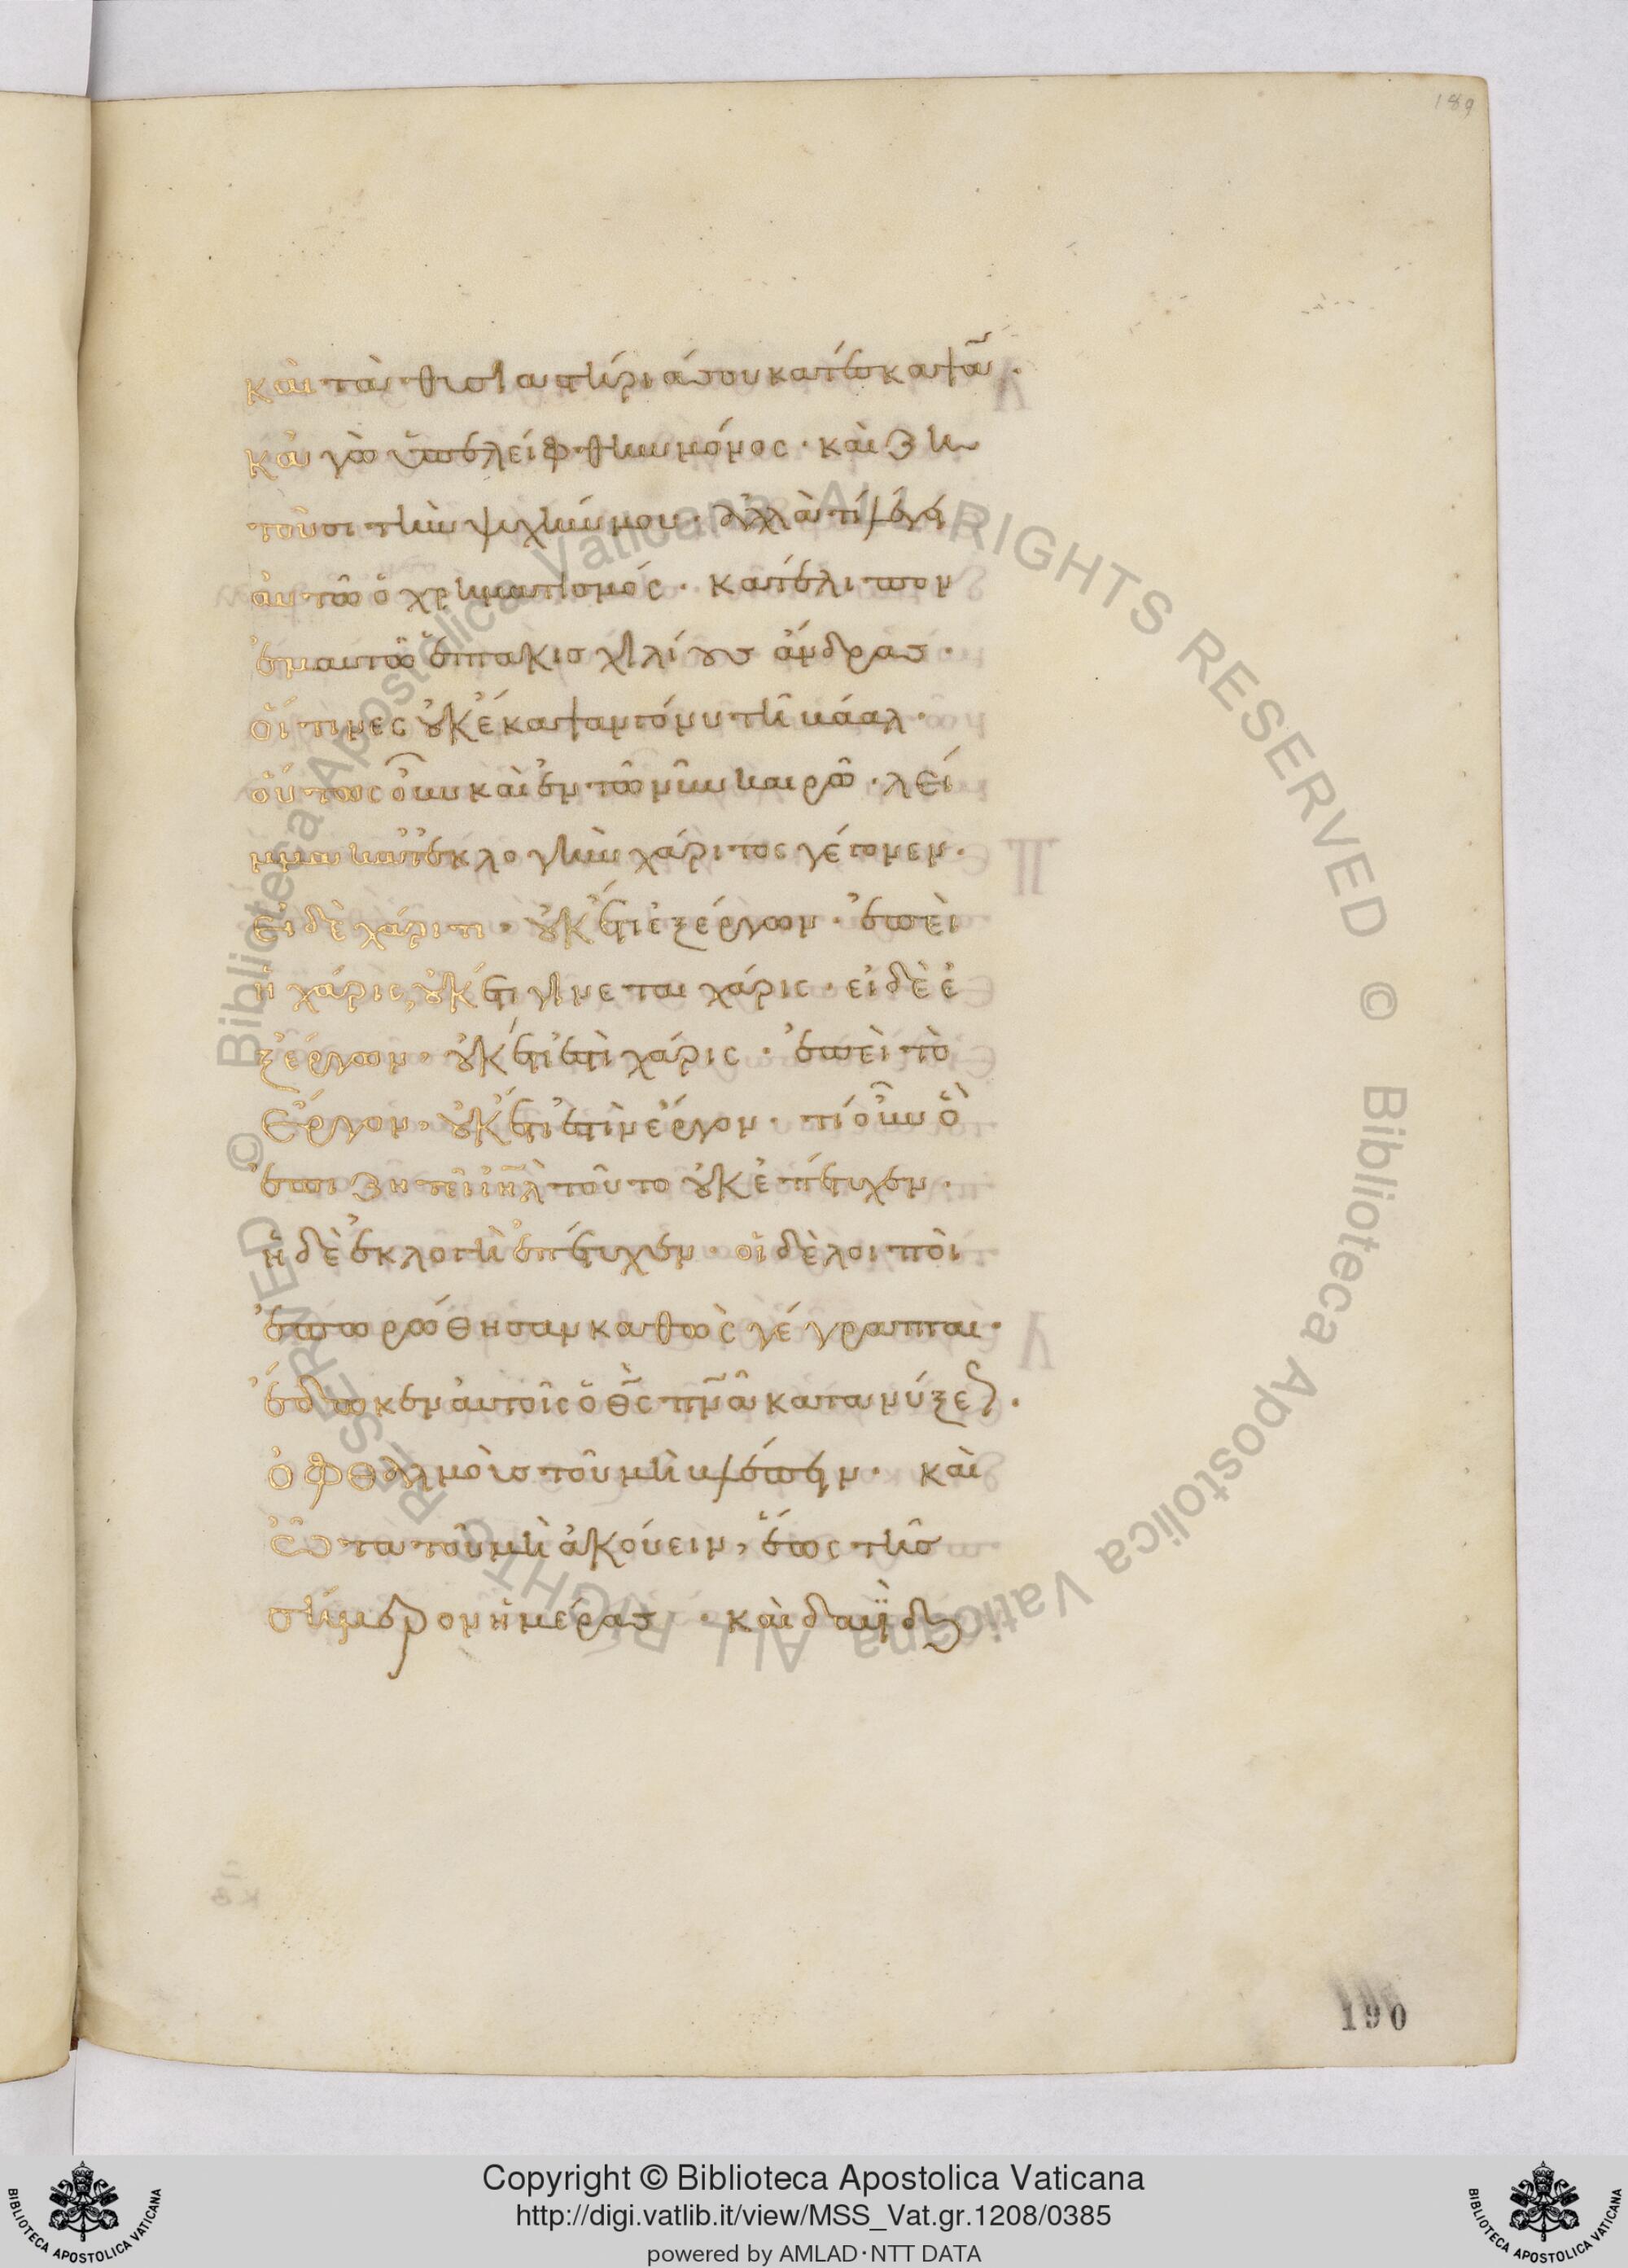 189
καὶ τὰ θυσιαστήριά σου κατέσκαψαν·
κἀγὼ ὑπελείφθην μόνος· καὶ ζη
τοῦσι τὴν ψυχήν μου· ἀλλὰ τί λέγει
αὐτῶ ὁ χρηματισμός· κατέλιπον
ἐμαυτῶ ἑπτακισχιλίους ἄνδρας·
οἵτινες οὐκ ἔκαψαν γόνυ τῆ βάαλ·
οὕτως οὖν καὶ ἐν τῶ νῦν καιρῶ· λεῖ
μμα κατ ἐκλογὴν χάριτος γέγονεν·
εἰ δὲ χάριτι, οὐκ έτι ἐξ έργων· ἐπεὶ
ἡ χάρις, οὐκ έτι γίνεται χάρις· εἰ δὲ ἐ
ξ έργων, οὐκ έτι ἐστὶ χάρις· ἐπεὶ τὸ
ἔργον, οὐκ έτι ἐστὶν έργον· τί οὖν ὃ
ἐπιζητεῖ ἰηλ τοῦτο οὐκ ἐπέτυχεν·
ἡ δὲ ἐκλογὴ ἐπέτυχεν· οἱ δὲ λοιποὶ
ἐπωρώθησαν καθὼς γέγραπται·
ἔδωκεν αὐτοῖς ὁ θς πνα κατανύξεως·
ὀφθαλμοὺς τοῦ μὴ βλέπειν· καὶ
ὦτα τοῦ μὴ ἀκούειν, ἕως τῆς
σήμερον ἡμέρας· καὶ δαυϊδ
190
Copyright © Biblioteca Apostolica Vaticana
http://digi.vatlib.it/view/MSS_Vat.gr.1208/0385
powered by AMLAD·NTT DATA
BIBLIOTECA APOSTOLICA VATICANA
BIBLIOTECA APOSTOLICA VATICANA
© Biblioteca Apostolica Vaticana ALL RIGHTS RESERVED
© Biblioteca Apostolica Vaticana ALL RIGHTS RESERVED